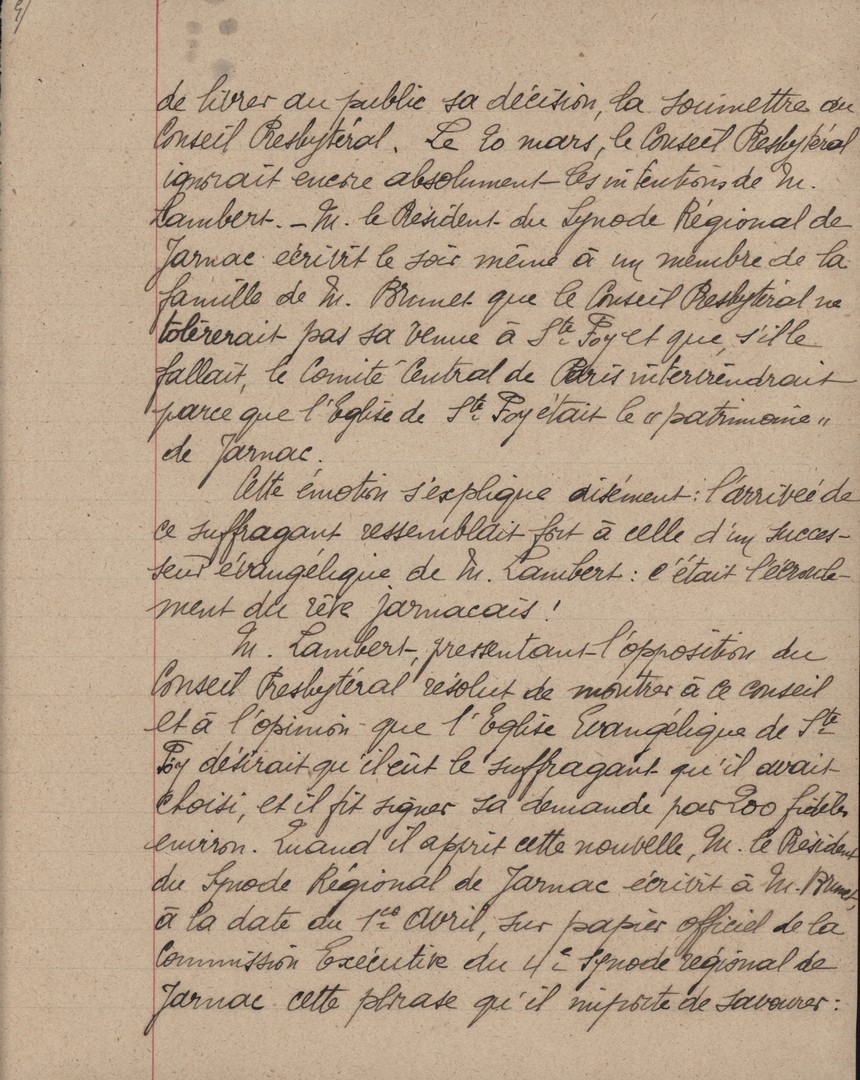 9/
de livrer au public sa décision, la soumettre au
Conseil Presbytéral. Le 20 mars, le Conseil Presbytéral
ignorait encore absolument les intentions de M.
Lambert. - M. le Président du Synode Régional de
Jarnac écrivit le soir même à un membre de la
famille de M. Brunet que le Conseil Presbytéral ne
tolèrerait pas sa venue à Ste Foy et que, s'il le
fallait, le Comité Central de Paris interviendrait
parce que l'Eglise de Ste Foy était le "patrimoine"
de Jarnac.
Cette émotion s'explique aisément : l'arrivée de
ce suffragant ressemblait fort à celle d'un succes-
seur évangélique de M. Lambert : c'était l'écroule-
ment du rêve jarnacais !
M. Lambert, pressentant l'opposition du
Conseil Presbytéral résolut de montrer à ce conseil
et à l'opinion que l'Eglise Evangélique de Ste
Foy désirait qu'il eût le suffragant qu'il avait
choisi, et il fit signer sa demande par 200 fidèles
environ. Quand il apprit cette nouvelle, M. le Président
du Synode Régional de Jarnac écrivit à M. Brunet,
à la date du 1er Avril, sur papier officiel de la
Commission Exécutive du 4e Synode régional de
Jarnac cette phrase qu'il importe de savourer :